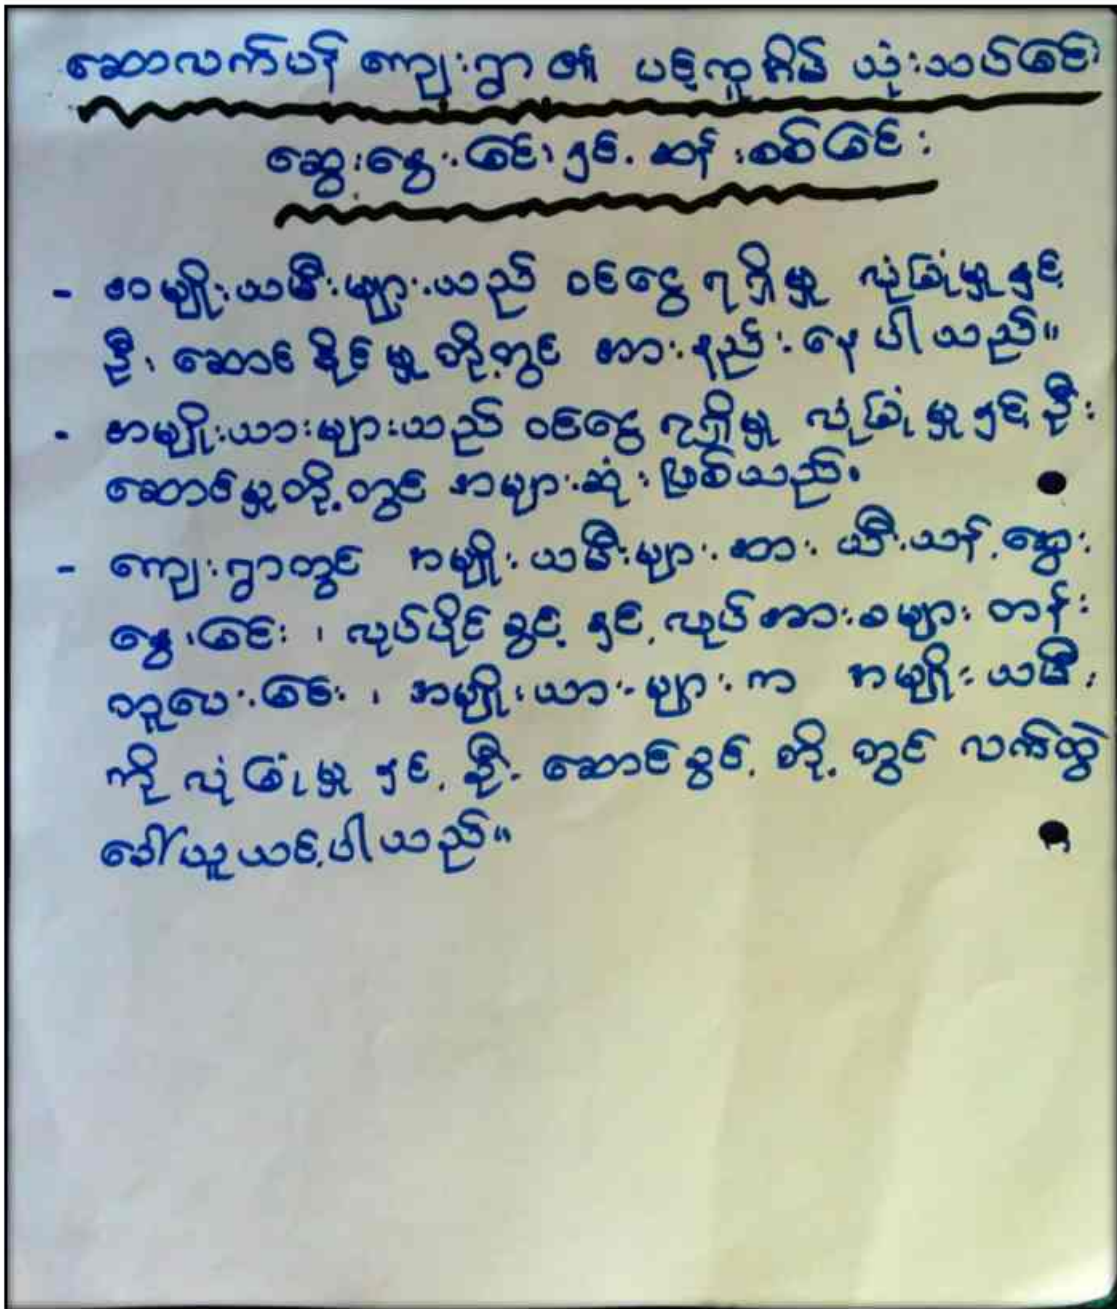 ဆောလက်ပန် ကျေးရွာ ၏ ပင့်ကူအိမ် သုံးသပ်ခြင်း
ဆွေးနွေးခြင်းနှင့် ဆန်းစစ်ခြင်း
- အမျိုးသမီးများသည် ဝင်ငွေ ရရှိမှု လုံခြုံမှုနှင့်
ဦးဆောင်နိုင်မှု တို့တွင် အားနည်းနေပါသည်။
- အမျိုးသားများသည် ဝင်ငွေ ရရှိမှု လုံခြုံမှုနှင့် ဦး
ဆောင်မှုတို့တွင် အများဆုံး ဖြစ်သည်။
- ကျေးရွာတွင် အမျိုးသမီးများအား သီးသန့်ဆွေး
နွေးခြင်း ၊ လုပ်ပိုင်ခွင့် နှင့် လုပ်အားခများ တန်း
တူပေးခြင်း ၊ အမျိုးသားများက အမျိုးသမီး
ကို လုံခြုံမှု နှင့် ဦးဆောင်ခွင့် တို့တွင် လက်တွဲ
ခေါ်ယူသင့်ပါသည်။